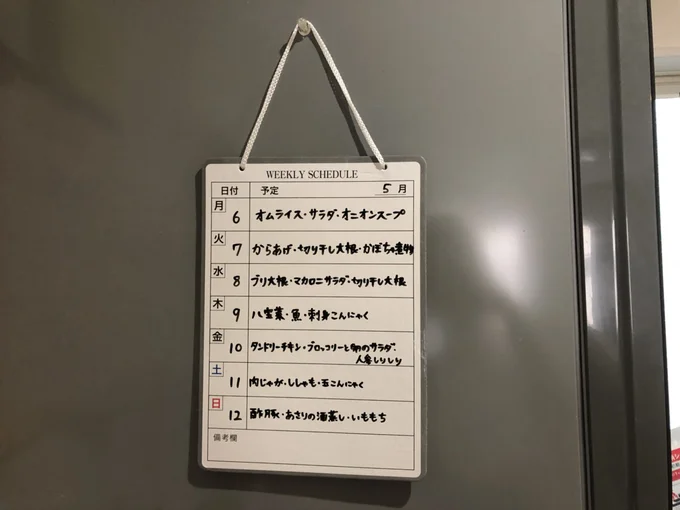 WEEKLY SCHEDULE
日付 予定 5 月
月 6 オムライス・サラダ・オニオンスープ
火 7 からあげ・切り干し大根・かぼちゃ煮物
水 8 ブリ大根・マカロニサラダ・切り干し大根
木 9 八宝菜・魚・刺身こんにゃく
金 10 タンドリーチキン・ブロッコリーと卵のサラダ・
人参しりしり
土 11 肉じゃが・ししゃも・玉こんにゃく
日 12 酢豚・あさりの酒蒸し・いももち
備考欄